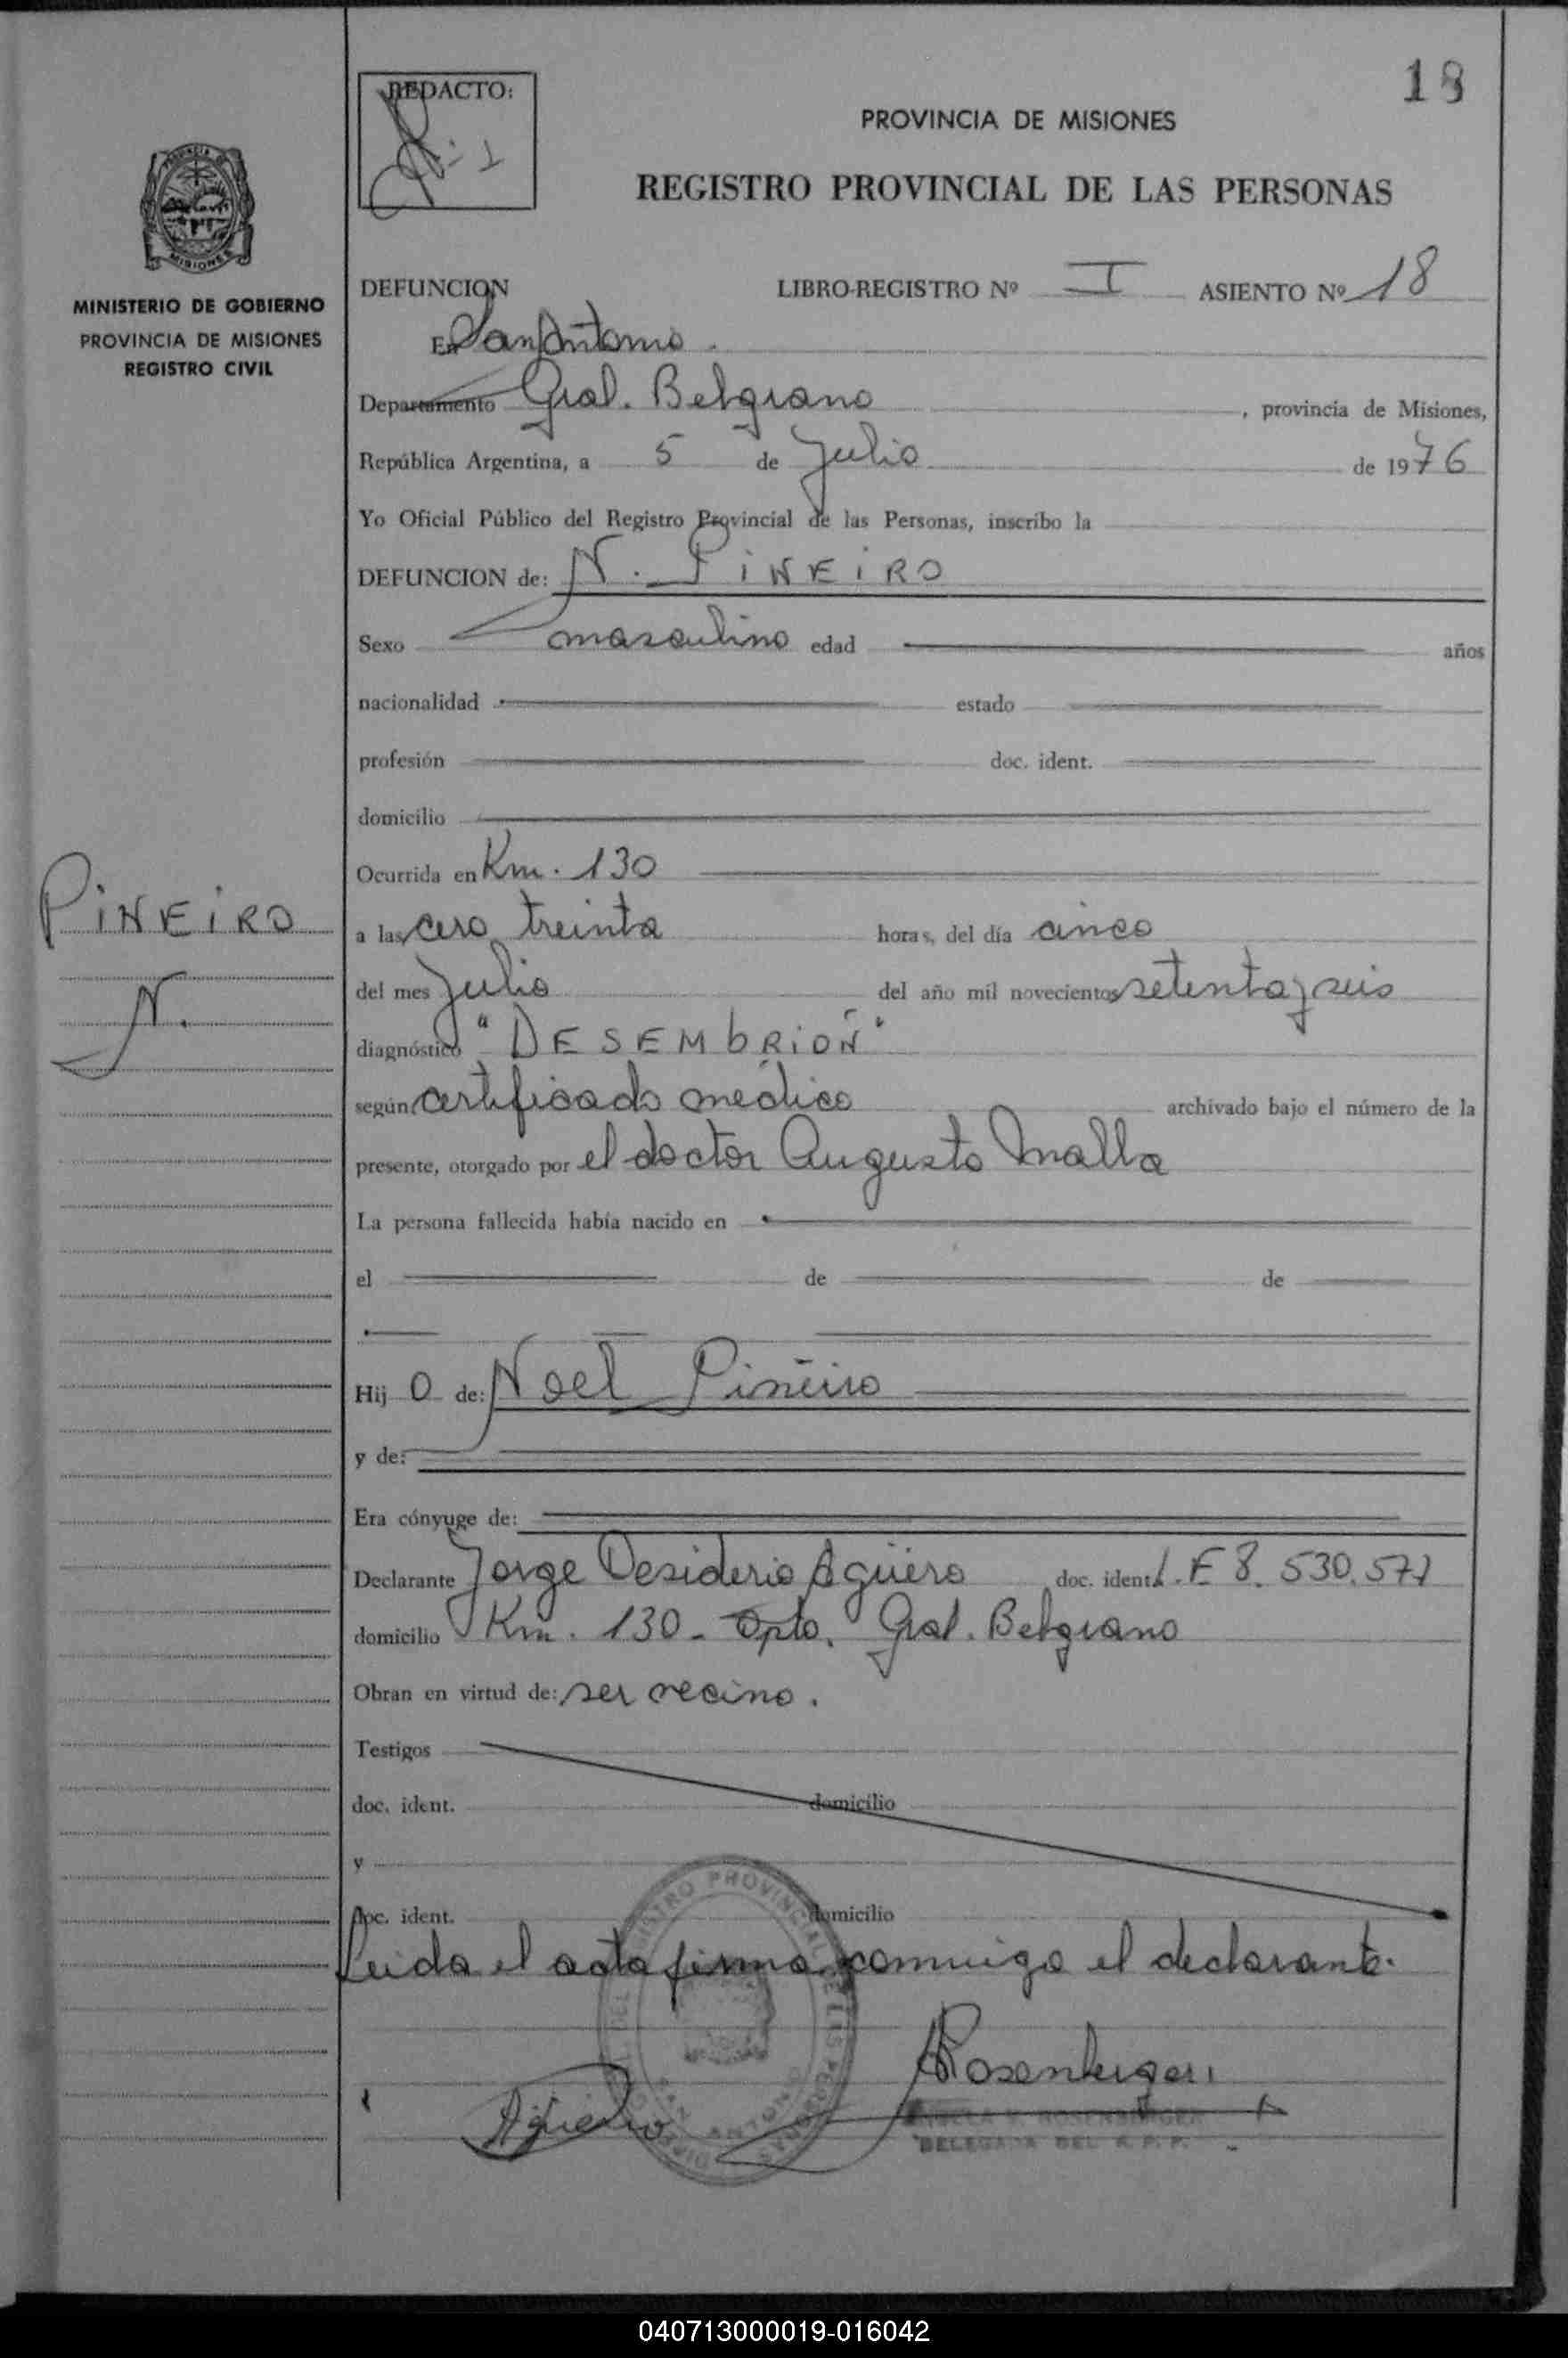 18
REDACTO:
PROVINCIA DE MISIONES
REGISTRO PROVINCIAL DE LAS PERSONAS
MINISTERIO DE GOBIERNO
PROVINCIA DE MISIONES
REGISTRO CIVIL
DEFUNCION LIBRO-REGISTRO Nº I ASIENTO Nº 18
En San Antonio
Departamento Gral. Belgrano, provincia de Misiones,
República Argentina, a 5 de Julio de 1976
Yo Oficial Público del Registro Provincial de las Personas, inscribo la
DEFUNCION de: N. PiNEiRO
Sexo masculino edad años
nacionalidad estado
profesión doc. ident.
domicilio
Ocurrida en Km. 130
PiNEiRO
N.
a las cero treinta horas, del día cinco
del mes Julio del año mil novecientos setenta y seis
diagnóstico "DESEMbRiON"
según certificado medico archivado bajo el número de la
presente, otorgado por el doctor Augusto Malla
La persona fallecida había nacido en
el de de
Hij o de: Noel Piñeiro
y de:
Era cónyuge de:
Declarante Jorge Desiderio Agüero doc. ident. L.E 8.530.571
domicilio Km. 130 - Dpto. Gral. Belgrano
Obran en virtud de: ser vecino.
Testigos
doc. ident. domicilio
y
doc. ident. domicilio
Leida el acta firma conmigo el declarante.
REGISTRO PROVINCIAL DE LAS PERSONAS
SAN ANTONIO
Agüero
Rosenberger
ROSENBERGER
DELEGADA DEL R. P. P.
040713000019-016042